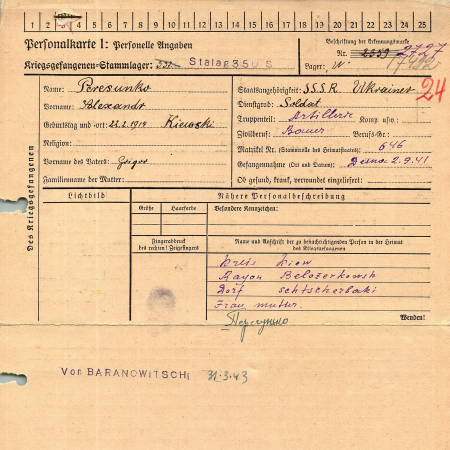 1 2 3 4 5 6 7 8 9 10 11 12 13 14 15 16 17 18 19 20 21 22 23 24 25
Personalkarte I: Personelle Angaben
Kriegsgefangenen-Stammlager: Stalag 350 S
Beschriftung der Erkennungsmarke
Nr. 2359 2727
Lager:
24
Des Kriegsgefangenen
Name: Peresunko
Vorname: Alexandr
Geburtstag und -ort: 22.2.1914 Kiewski
Religion:
Vorname des Vaters: Jegor
Familienname der Mutter:
Staatsangehörigkeit: SSSR Ukrainer
Dienstgrad: Soldat
Truppenteil: Artillerie Komp. usw.:
Zivilberuf: Bauer Berufs-Gr.:
Matrikel Nr. (Stammrolle des Heimatstaates): 646
Gefangennahme (Ort und Datum): Desna 2.9.41
Ob gesund, krank, verwundet eingeliefert:
Lichtbild
Nähere Personalbeschreibung
Größe
Haarfarbe
Besondere Kennzeichen:
Fingerabdruck
des rechten! Zeigefingers
Name und Anschrift der zu benachrichtigenden Person in der Heimat
des Kriegsgefangenen
Kreis Kiew
Rayon Belozerkowsk
Dorf Schtscherbaki
Frau mutter.
Пересунько
Wenden!
Von BARANOWITSCHI 31.3.43